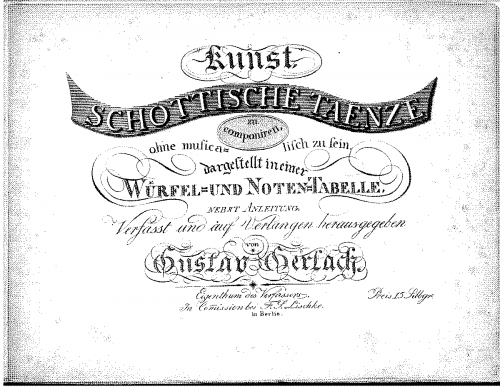 Kunst,
SCHOTTISCHE TAENZE
zu
componiren,
ohne musica= lisch zu sein,
dargestellt in einer
WÜRFEL=UND NOTEN=TABELLE.
NEBST ANLEITUNG.
Verfasst und auf Verlangen herausgegeben
von
Gustav Gerlach.
Eigenthum des Verfassers.
Preis 15 Silbgr.
In Comission bei F. S. Lischke.
in Berlin.